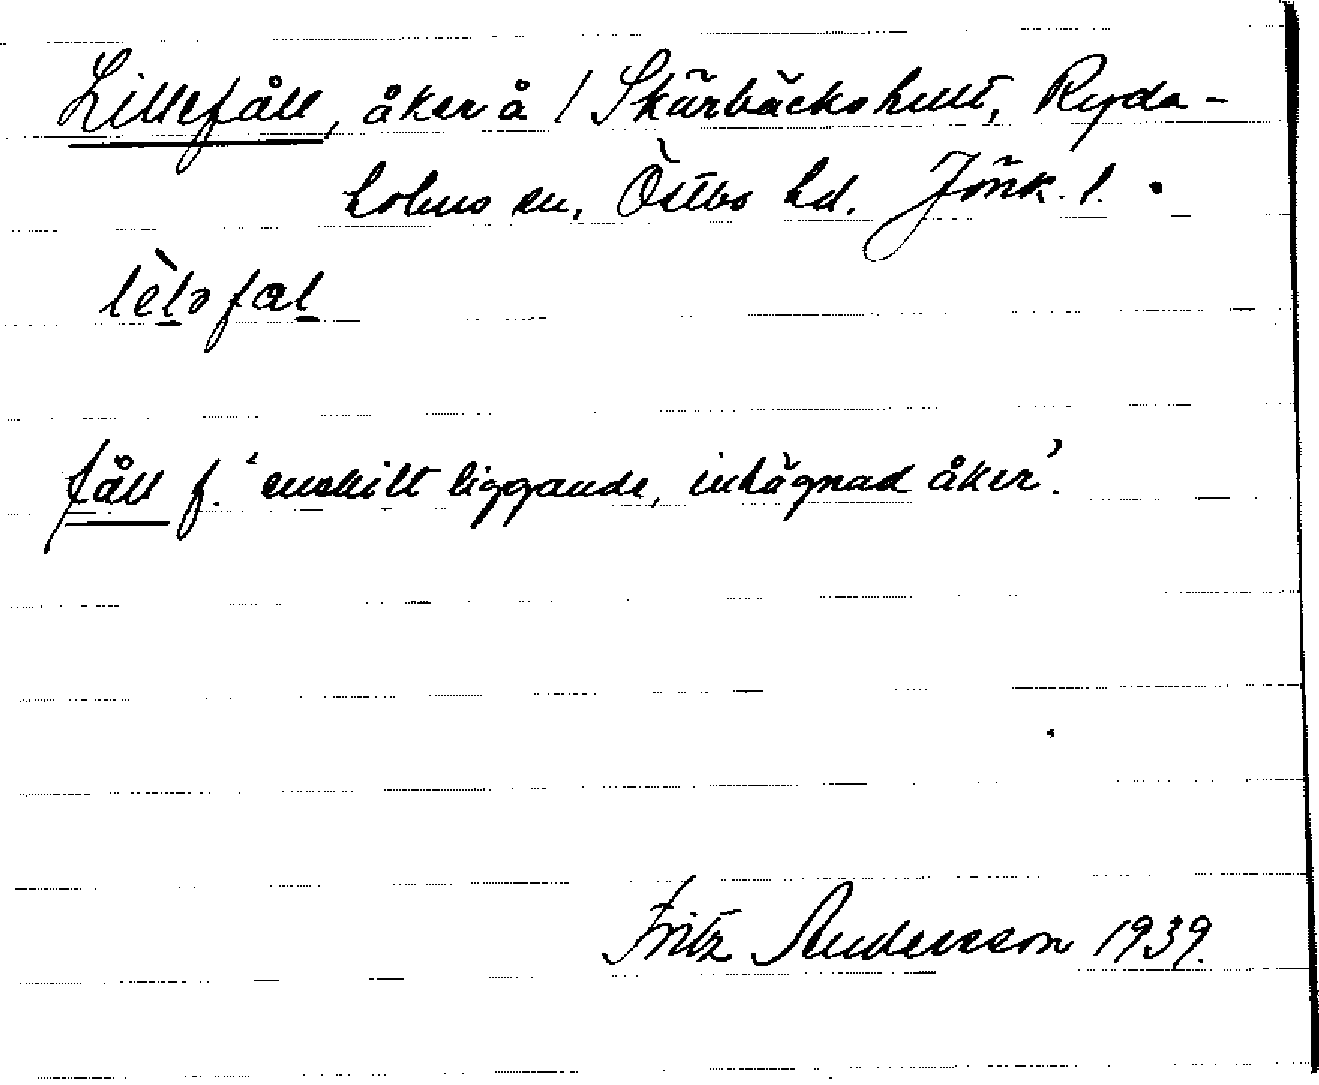 Lillefåll, åker å / Skärbäckshult, Ryda-
holms sn, Östbo hd. Jönk. l.
lèləfal
fåll f. 'enskilt liggande, inhägnad åker'.
Fritz Andersson 1939.